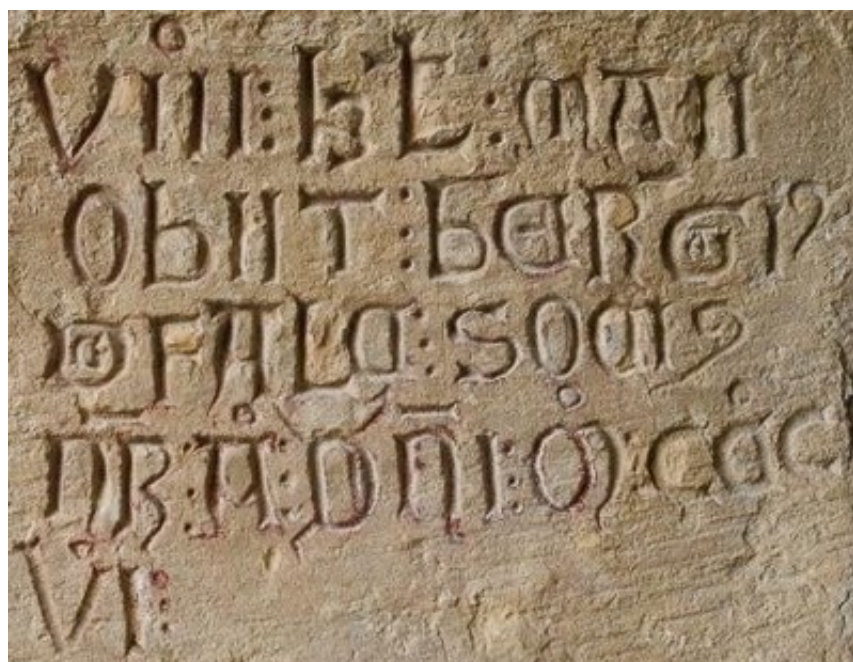 VIIIº : KL : MAII
OBIIT : BERGIꝰ
GFALC : SOCIꝰ
N̄R : Aº : DN̄I : Mº : CCCº
VI :